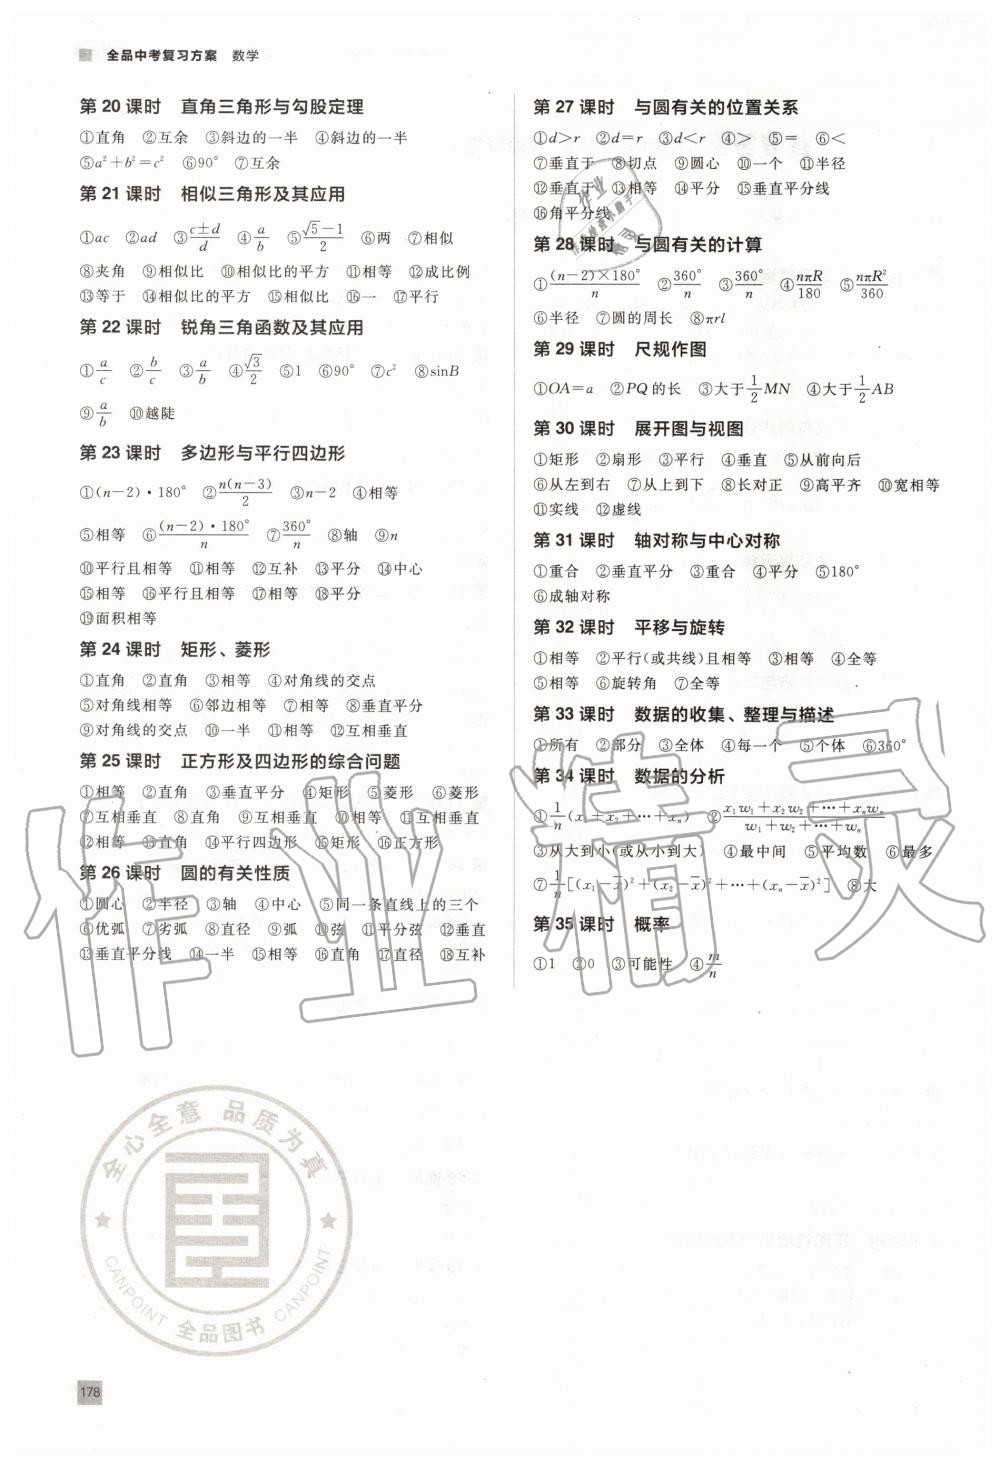 全品中考复习方案 数学
第 20 课时 直角三角形与勾股定理
①直角 ②互余 ③斜边的一半 ④斜边的一半
⑤a²+b²=c² ⑥90° ⑦互余
第 21 课时 相似三角形及其应用
①ac ②ad ③(c±d)/d ④a/b ⑤(√5-1)/2 ⑥两 ⑦相似
⑧夹角 ⑨相似比 ⑩相似比的平方 ⑪相等 ⑫成比例
⑬等于 ⑭相似比的平方 ⑮相似比 ⑯一 ⑰平行
第 22 课时 锐角三角函数及其应用
①a/c ②b/c ③a/b ④√3/2 ⑤1 ⑥90° ⑦c² ⑧sinB
⑨a/b ⑩越陡
第 23 课时 多边形与平行四边形
①(n-2)·180° ②n(n-3)/2 ③n-2 ④相等
⑤相等 ⑥(n-2)·180°/n ⑦360°/n ⑧轴 ⑨n
⑩平行且相等 ⑪相等 ⑫互补 ⑬平分 ⑭中心
⑮相等 ⑯平行且相等 ⑰相等 ⑱平分
⑲面积相等
第 24 课时 矩形、菱形
①直角 ②直角 ③相等 ④对角线的交点
⑤对角线相等 ⑥邻边相等 ⑦相等 ⑧垂直平分
⑨对角线的交点 ⑩一半 ⑪相等 ⑫互相垂直
第 25 课时 正方形及四边形的综合问题
①相等 ②直角 ③垂直平分 ④矩形 ⑤菱形 ⑥菱形
⑦互相垂直 ⑧直角 ⑨互相垂直 ⑩相等 ⑪互相垂直
⑫相等 ⑬直角 ⑭平行四边形 ⑮矩形 ⑯正方形
第 26 课时 圆的有关性质
①圆心 ②半径 ③轴 ④中心 ⑤同一条直线上的三个
⑥优弧 ⑦劣弧 ⑧直径 ⑨弧 ⑩弦 ⑪平分弦 ⑫垂直
⑬垂直平分线 ⑭一半 ⑮相等 ⑯直角 ⑰直径 ⑱互补
第 27 课时 与圆有关的位置关系
①d>r ②d=r ③d<r ④> ⑤= ⑥<
⑦垂直于 ⑧切点 ⑨圆心 ⑩一个 ⑪半径
⑫垂直于 ⑬相等 ⑭平分 ⑮垂直平分线
⑯角平分线
第 28 课时 与圆有关的计算
①(n-2)×180°/n ②360°/n ③360°/n ④nπR/180 ⑤nπR²/360
⑥半径 ⑦圆的周长 ⑧πrl
第 29 课时 尺规作图
①OA=a ②PQ的长 ③大于1/2MN ④大于1/2AB
第 30 课时 展开图与视图
①矩形 ②扇形 ③平行 ④垂直 ⑤从前向后
⑥从左到右 ⑦从上到下 ⑧长对正 ⑨高平齐 ⑩宽相等
⑪实线 ⑫虚线
第 31 课时 轴对称与中心对称
①重合 ②垂直平分 ③重合 ④平分 ⑤180°
⑥成轴对称
第 32 课时 平移与旋转
①相等 ②平行(或共线)且相等 ③相等 ④全等
⑤相等 ⑥旋转角 ⑦全等
第 33 课时 数据的收集、整理与描述
①所有 ②部分 ③全体 ④每一个 ⑤个体 ⑥360°
第 34 课时 数据的分析
①1/n(x₁+x₂+⋯+xₙ) ②(x₁w₁+x₂w₂+⋯+xₙwₙ)/(w₁+w₂+⋯+wₙ)
③从大到小(或从小到大) ④最中间 ⑤平均数 ⑥最多
⑦1/n[(x₁-x̄)²+(x₂-x̄)²+⋯+(xₙ-x̄)²] ⑧大
第 35 课时 概率
①1 ②0 ③可能性 ④m/n
作业精灵
全心全意 品质为真
CANPOINT 全品图书 CANPOINT
178